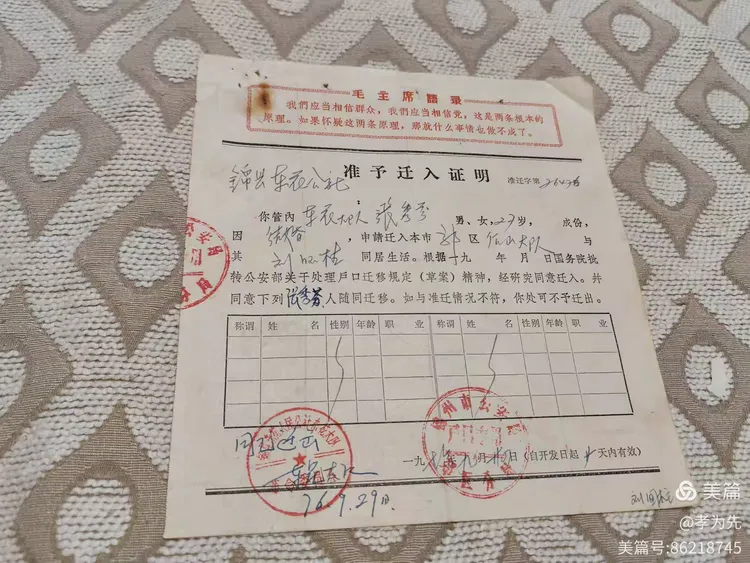 毛主席語录
我們应当相信群众，我們应当相信党，这是两条根本的
原理。如果怀疑这两条原理，那就什么事情也做不成了。
锦县东花公社
准予迁入证明
准迁字第 号
你管内 东花大队 张秀芬 男、女，27岁， 成份，
因 结婚 ，申請迁入本市 郊 区 大队 与
其 同居生活。根据一九 年 月 日国务院批
轉公安部关于处理戶口迁移规定（草案）精神，经研究同意迁入。并
同意下列 张秀芬 人随同迁移。如与准迁情况不符，你处可不予迁出。
称谓 姓 名 性别 年龄 职 业 称谓 姓 名 性别 年龄 职 业
同意迁出
锦州市公安
一九 年 月 日（自开发日起 天内有效）
76.9.29日
美篇
@孝为先
美篇号:86218745